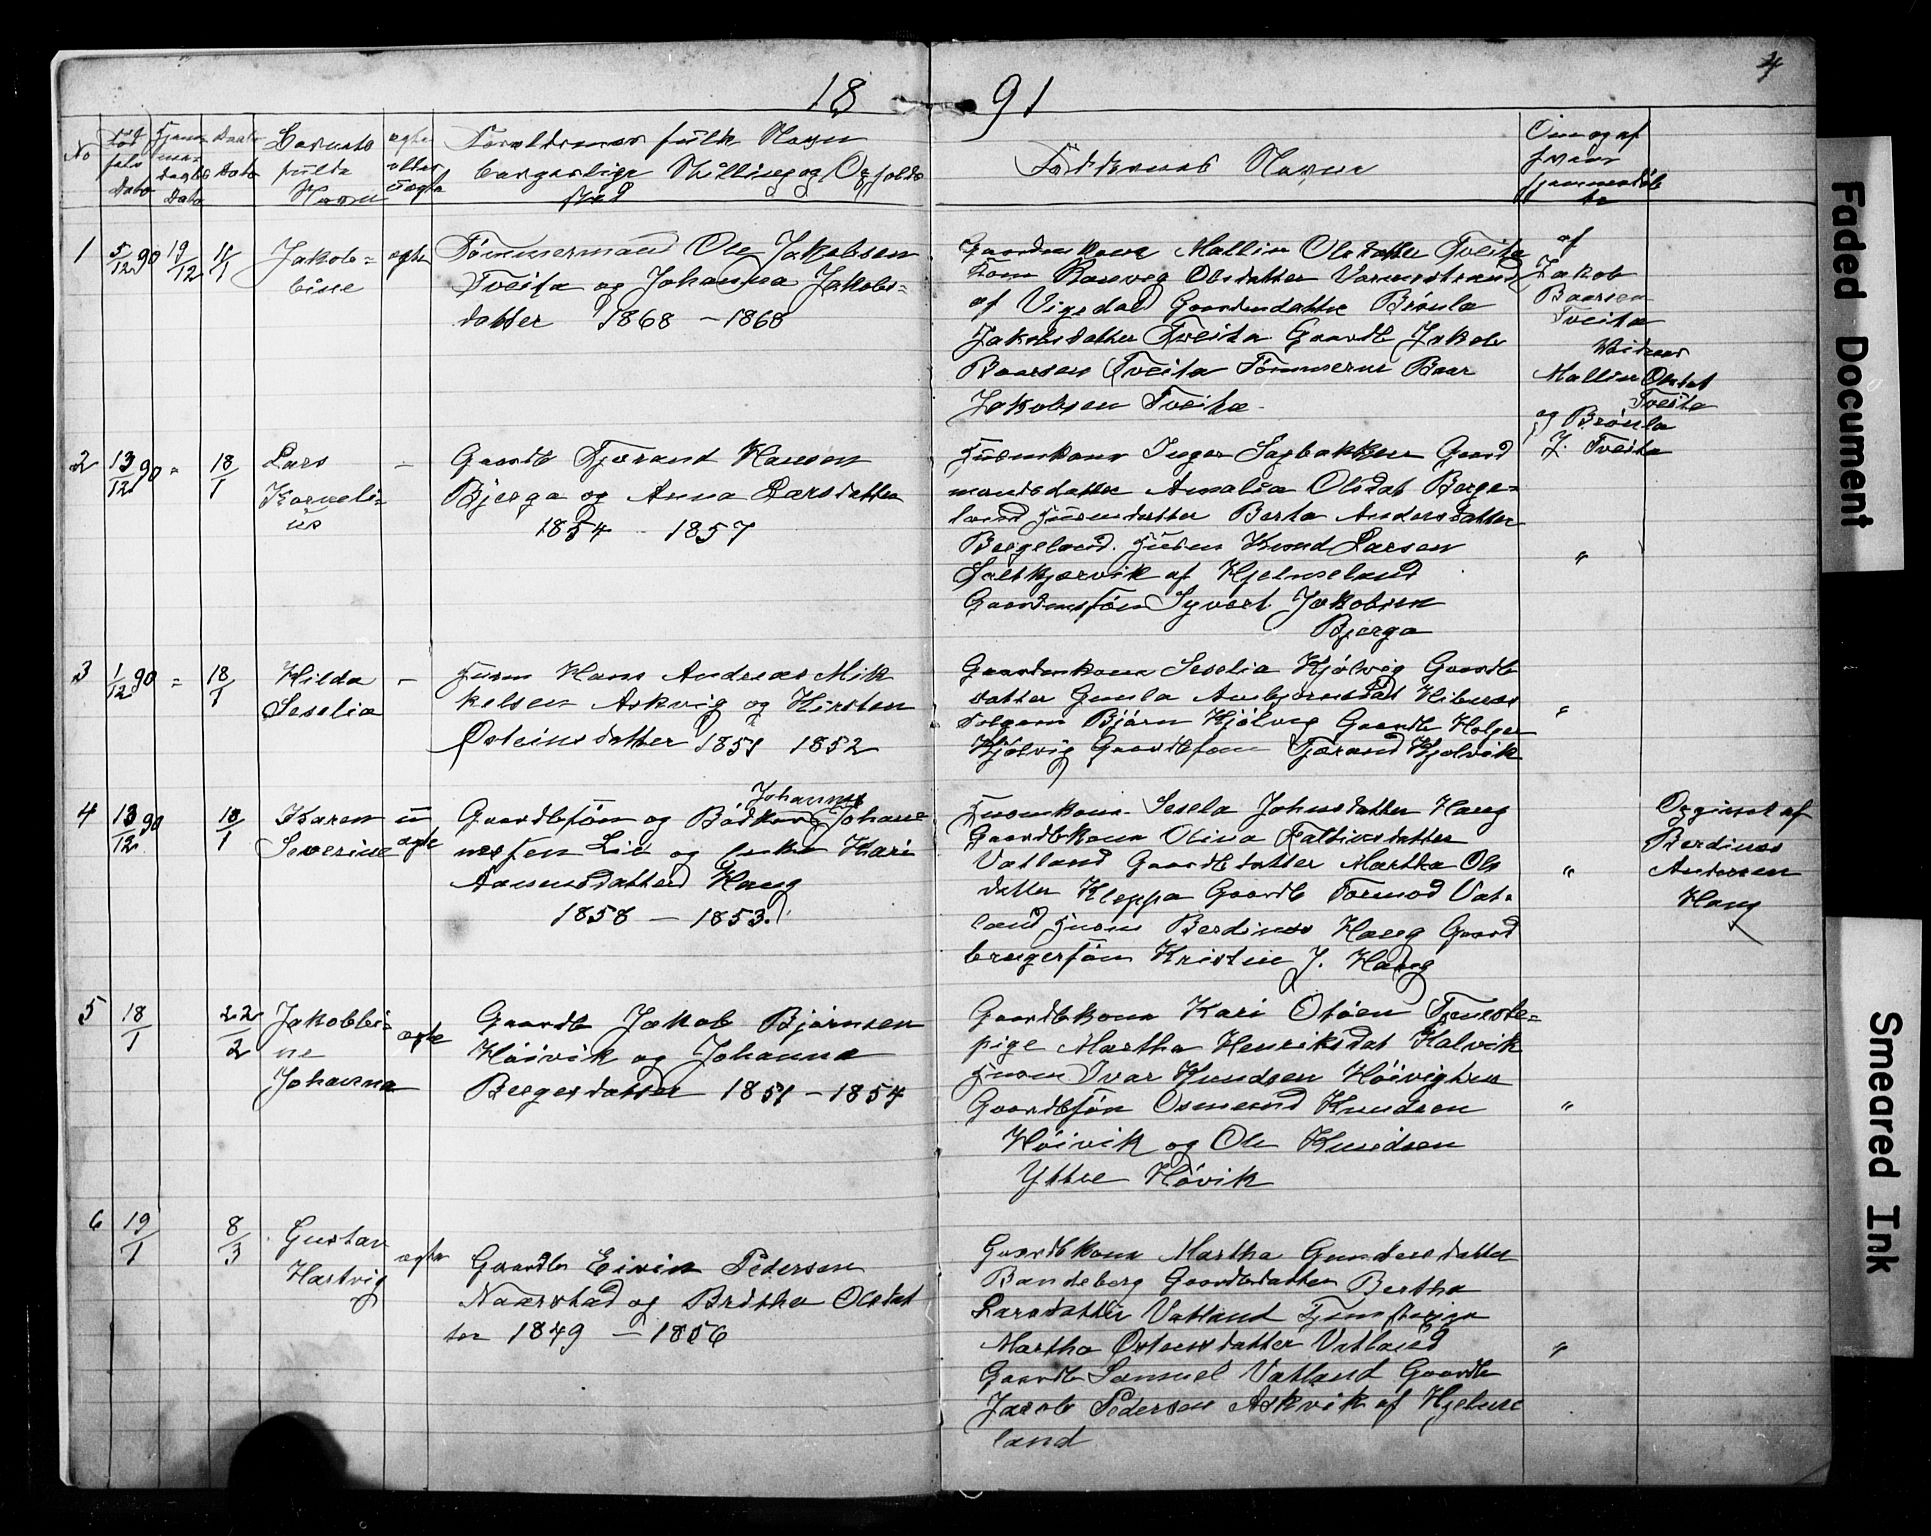 18 91
4
No
Fød
sels
Dato
Hjem
me-
daabs
Dato
Daabs
Dato
Barnets
fulde
Navn
ægte
eller
uægte
Forældrenes fulde Navn
borgerlige Stilling og Opholds
sted
Faddernes Navne
Om og af
hvem
hjemmedøb
te
1 5/12 90 19/12 11/1
Jakob=
bine
ægte
Tømmermand Ole Jakobsen
Tveita og Johanna Jakobs=
datter 1868 - 1868
Gaardmkone Mallin Olsdatter Tveita
Kone Ranveig Olsdatter Varmestrand
af Vigedal Gaardmdatter Brønla
Jakobsdatter Tveita Gaardb Jakob
Baarsen Tveita Tømmerm Baar
Jakobsen Tveita
af
Jakob
Baarsen
Tveita
Vidner
Mallin Olsdat
Tveita
og Brønla
J. Tveita
2 13/12 90 = 18/1
Lars
Korneli=
us
-
Gaardb Tjerand Hansen
Bjerga og Anna Larsdatter
1854 - 1857
Husmkone Inger Sagbakken Gaard
mandsdatter Amalia Olsdat Berge=
land Husmdatter Berta Andersdatter
Bergeland. Husm Knud Larsen
Saltkjærvik af Hjelmeland
Gaardmssøn Syvert Jakobsen
Bjerga
"
3 1/12 90 = 18/1
Hilda
Seselia
-
Husm Hans Andreas Mik
kelsen Askvig og Kirsten
Østeinsdatter 1851 1852
Gaardmkone Seselia Kjølvig Gaardb
datter Gunla Anbjørnsdat Hibnes
Bjørn Kjølvig Gaardb Holger
Kjølvig Gaardbsøn Tjerand Kjølvik
"
4 13/12 90 18/1
Karen
Severine
u
ægte
Johannes
Gaardbsøn og Bødker Johan
nessen Lie og enke Kari
Aamundsdatter Haug
1858 - 1853.
Husmkone Sesela Johnsdatter Haug
Gaardbkone Olina Faltinsdatter
Vatland Gaardbdatter Martha Ols
datter Kleppa Gaardb Tormod Vat=
land Husm Berdines Haug Gaard
brugersøn Kristen J. Haug
"
Opgivet af
Berdines
Andersen
Haug
5 18/1 22/2
Jakobbi=
ne
Johanna
ægte
Gaardb Jakob Bjørnsen
Høivik og Johanna
Bergesdatter 1851 - 1854
Gaardbkone Kari Otøen Tjeneste=
pige Martha Henriksdat Halvik
Husm Ivar Knudsen Høivighus
Gaardbsøn Osmund Knudsen
Høivik og Ole Knudsen
Yttre Høvik
"
6 19/1 8/3
Gustav
Hartvig
ægte
Gaardb Eivin Pedersen
Naarstad og Britha Olsdat
ter 1849 - 1856
Gaardbkone Martha Gundersdatter
Bandeberg Gaardbdatter Bertha
Larsdatter Vatland Tjenstepige
Martha Østensdatter Vatland
Gaardb Samuel Vatland Gaardb
Jacob Pedersen Askvik af Hjelme
land
"
Faded Document
Smeared Ink